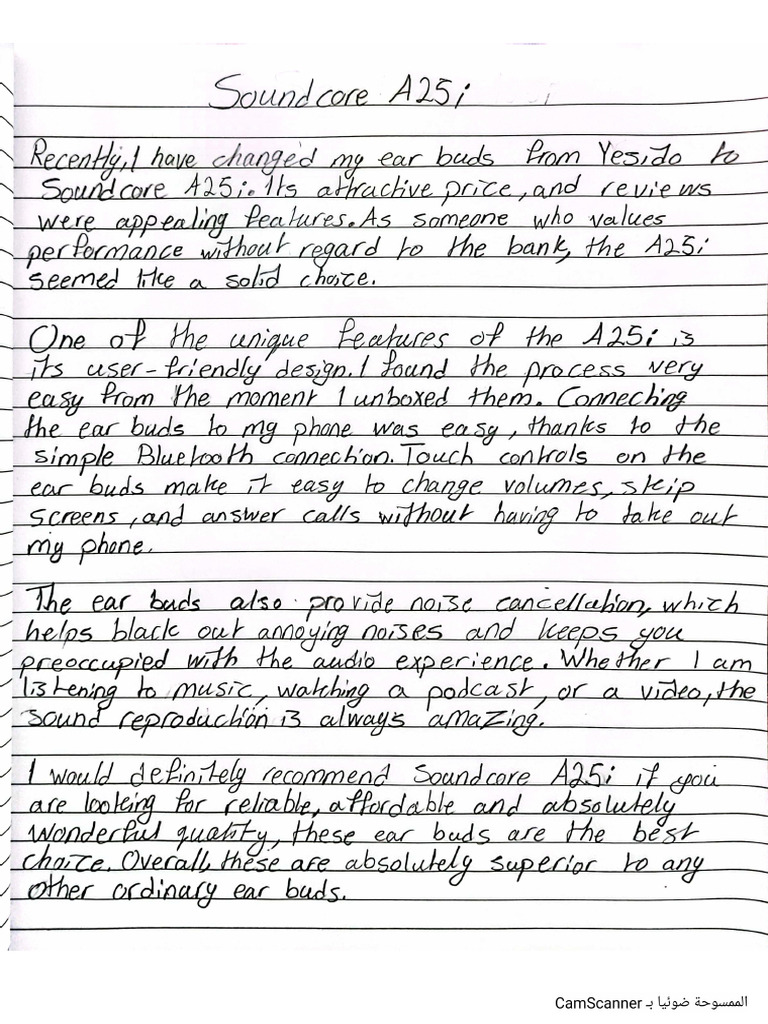 Soundcore A25i
Recently, I have changed my ear buds from Yesido to
Soundcore A25i. Its attractive price, and reviews
were appealing features. As someone who values
performance without regard to the bank, the A25i
seemed like a solid choice.
One of the unique features of the A25i is
its user-friendly design. I found the process very
easy from the moment I unboxed them. Connecting
the ear buds to my phone was easy, thanks to the
simple Bluetooth connection. Touch controls on the
ear buds make it easy to change volumes, skip
screens, and answer calls without having to take out
my phone.
The ear buds also provide noise cancellation, which
helps black out annoying noises and keeps you
preoccupied with the audio experience. Whether I am
listening to music, watching a podcast, or a video, the
sound reproduction is always amazing.
I would definitely recommend Soundcore A25i if you
are looking for reliable, affordable and absolutely
wonderful quality, these ear buds are the best
choice. Overall, these are absolutely superior to any
other ordinary ear buds.
الممسوحة ضوئيا بـ CamScanner